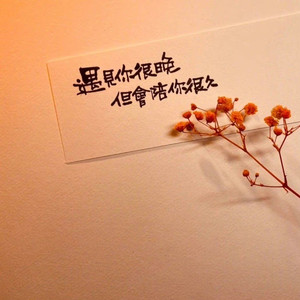 遇見你很晚
但會陪你很久